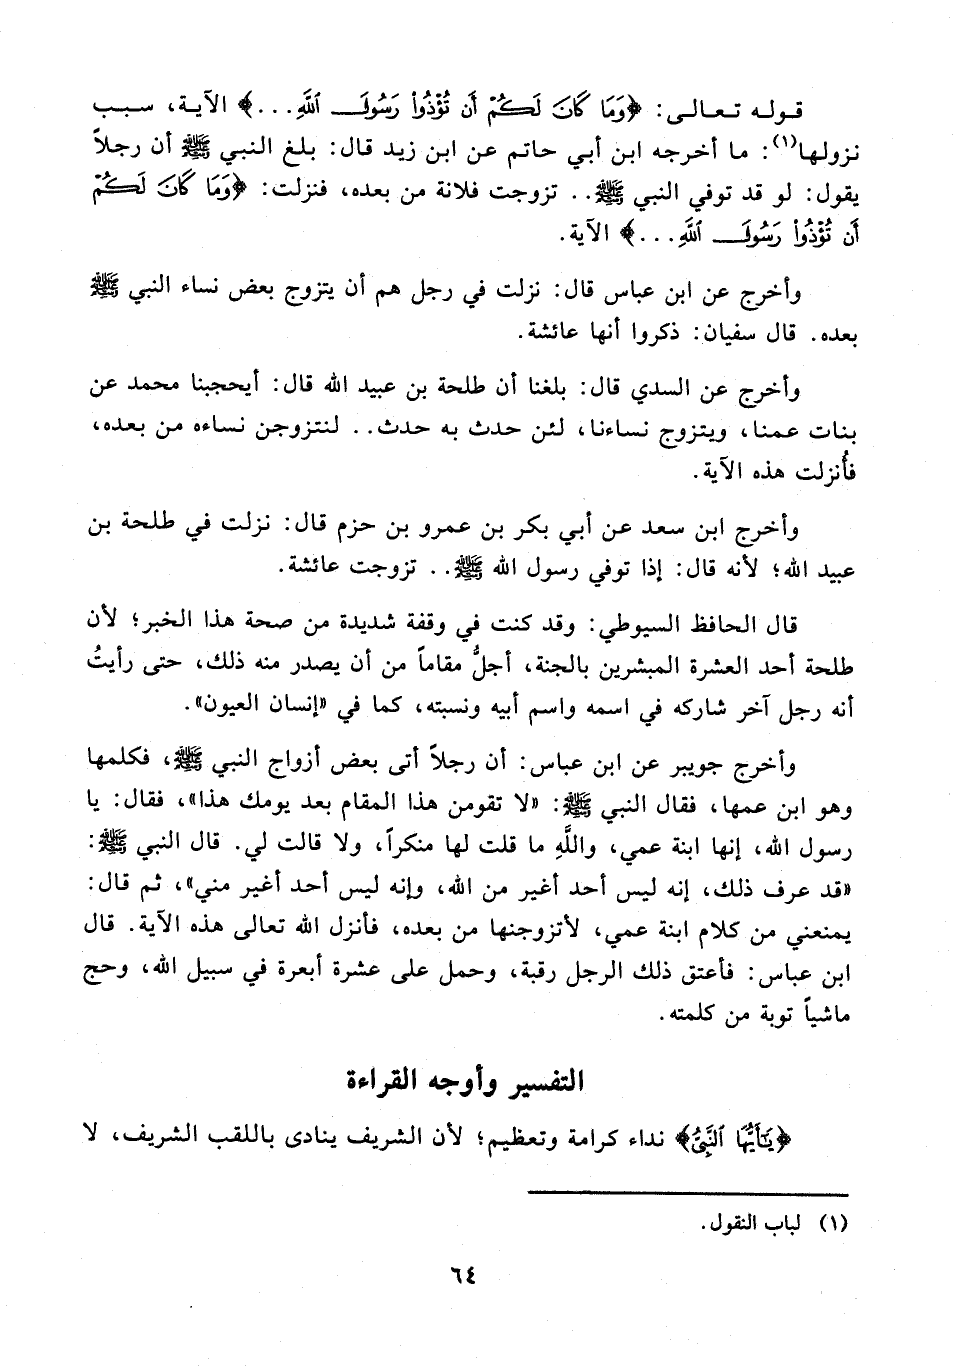 قوله تعالى: ﴿وَمَا كَانَ لَكُمْ أَن تُؤْذُوا۟ رَسُولَ ٱللَّهِ...﴾ الآية، سبب
نزولها(١): ما أخرجه ابن أبي حاتم عن ابن زيد قال: بلغ النبي ﷺ أن رجلاً
يقول: لو قد توفي النبي ﷺ.. تزوجت فلانة من بعده، فنزلت: ﴿وَمَا كَانَ لَكُمْ
أَن تُؤْذُوا۟ رَسُولَ ٱللَّهِ...﴾ الآية.
وأخرج عن ابن عباس قال: نزلت في رجل هم أن يتزوج بعض نساء النبي ﷺ
بعده. قال سفيان: ذكروا أنها عائشة.
وأخرج عن السدي قال: بلغنا أن طلحة بن عبيد الله قال: أيحجبنا محمد عن
بنات عمنا، ويتزوج نساءنا، لئن حدث به حدث.. لنتزوجن نساءه من بعده،
فأُنزلت هذه الآية.
وأخرج ابن سعد عن أبي بكر بن عمرو بن حزم قال: نزلت في طلحة بن
عبيد الله؛ لأنه قال: إذا توفي رسول الله ﷺ.. تزوجت عائشة.
قال الحافظ السيوطي: وقد كنت في وقفة شديدة من صحة هذا الخبر؛ لأن
طلحة أحد العشرة المبشرين بالجنة، أجلُّ مقاماً من أن يصدر منه ذلك، حتى رأيتُ
أنه رجل آخر شاركه في اسمه واسم أبيه ونسبته، كما في «إنسان العيون».
وأخرج جويبر عن ابن عباس: أن رجلاً أتى بعض أزواج النبي ﷺ، فكلمها
وهو ابن عمها، فقال النبي ﷺ: «لا تقومن هذا المقام بعد يومك هذا»، فقال: يا
رسول الله، إنها ابنة عمي، واللَّهِ ما قلت لها منكراً، ولا قالت لي. قال النبي ﷺ:
«قد عرف ذلك، إنه ليس أحد أغير من الله، وإنه ليس أحد أغير مني»، ثم قال:
يمنعني من كلام ابنة عمي، لأتزوجنها من بعده، فأنزل الله تعالى هذه الآية. قال
ابن عباس: فأعتق ذلك الرجل رقبة، وحمل على عشرة أبعرة في سبيل الله، وحج
ماشياً توبة من كلمته.
التفسير وأوجه القراءة
﴿يَٰٓأَيُّهَا ٱلنَّبِىُّ﴾ نداء كرامة وتعظيم؛ لأن الشريف ينادى باللقب الشريف، لا
(١) لباب النقول.
٦٤